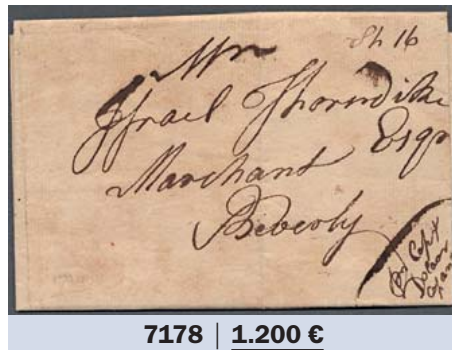 Sh 16
Mr
Israel Thorndike
Esqr
Marchant
Beverly
Capt
7178 | 1.200 €